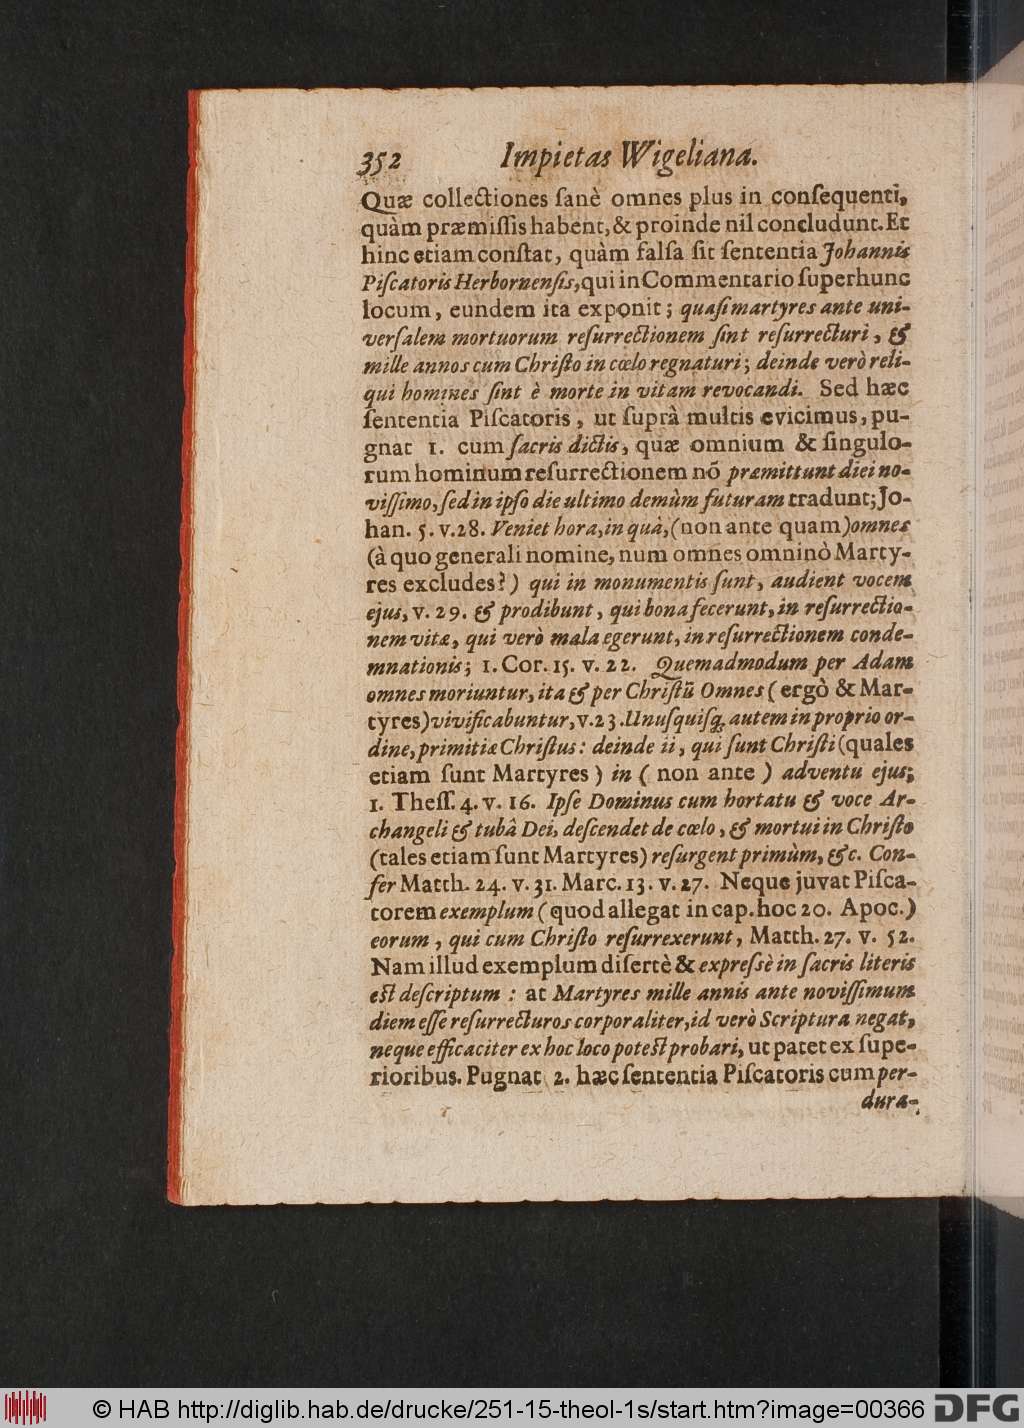 352 Impietas Wigeliana.
Quæ collectiones ſanè omnes plus in conſequenti,
quàm præmiſſis habent, & proinde nil concludunt. Et
hinc etiam conſtat, quàm falſa ſit ſententia Johannis
Piſcatoris Herbornenſis, qui in Commentario ſuper hunc
locum, eundem ita exponit; quaſi martyres ante uni-
verſalem mortuorum reſurrectionem ſint reſurrecturi, &
mille annos cum Chriſto in cœlo regnaturi; deinde verò reli-
qui homines ſint è morte in vitam revocandi. Sed hæc
ſententia Piſcatoris, ut ſuprà multis evicimus, pu-
gnat 1. cum ſacris dictis, quæ omnium & ſingulo-
rum hominum reſurrectionem nō præmittunt diei no-
viſſimo, ſed in ipſo die ultimo demùm futuram tradunt; Jo-
han. 5. v. 28. Veniet hora, in quà, (non ante quam) omnes
(à quo generali nomine, num omnes omninò Marty-
res excludes?) qui in monumentis ſunt, audient vocem
ejus, v. 29. & prodibunt, qui bona fecerunt, in reſurrectio-
nem vitæ, qui verò mala egerunt, in reſurrectionem conde-
mnationis; 1. Cor. 15. v. 22. Quemadmodum per Adam
omnes moriuntur, ita & per Chriſtū Omnes (ergò & Mar-
tyres) vivificabuntur, v. 23. Unuſquiſq; autem in proprio or-
dine, primitiæ Chriſtus: deinde ii, qui ſunt Chriſti (quales
etiam ſunt Martyres) in (non ante) adventu ejus;
1. Theſſ. 4. v. 16. Ipſe Dominus cum hortatu & voce Ar-
changeli & tubâ Dei, deſcendet de cœlo, & mortui in Chriſto
(tales etiam ſunt Martyres) reſurgent primùm, &c. Con-
fer Matth. 24. v. 31. Marc. 13. v. 27. Neque juvat Piſca-
torem exemplum (quod allegat in cap. hoc 20. Apoc.)
eorum, qui cum Chriſto reſurrexerunt, Matth. 27. v. 52.
Nam illud exemplum diſertè & expreſsè in ſacris literis
eſt deſcriptum: at Martyres mille annis ante noviſſimum
diem eſſe reſurrecturos corporaliter, id verò Scriptura negat,
neque efficaciter ex hoc loco poteſt probari, ut patet ex ſupe-
rioribus. Pugnat 2. hæc ſententia Piſcatoris cum per-
dura-
© HAB http://diglib.hab.de/drucke/251-15-theol-1s/start.htm?image=00366
DFG